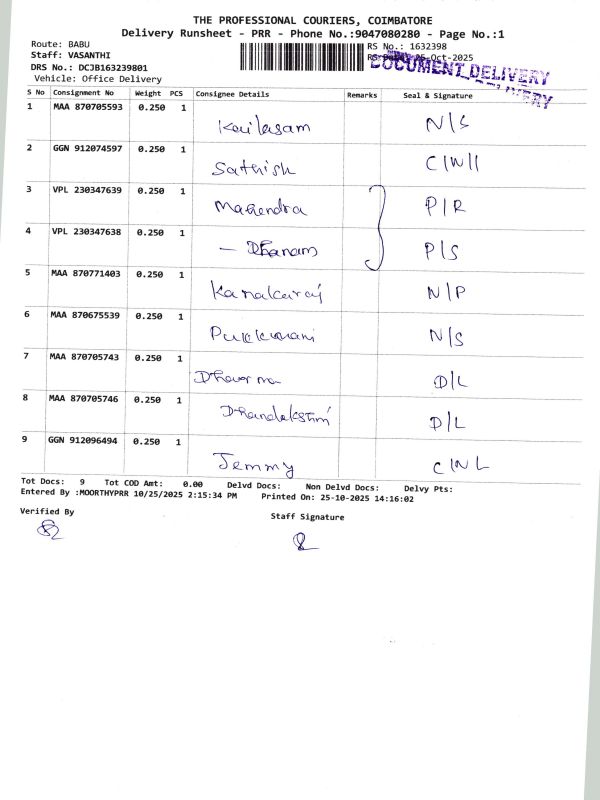 THE PROFESSIONAL COURIERS, COIMBATORE
Delivery Runsheet - PRR - Phone No.:9047080280 - Page No.:1
Route: BABU
Staff: VASANTHI
DRS No.: DCJB163239801
Vehicle: Office Delivery
RS No.: 1632398
25-Oct-2025
DOCUMENT DELIVERY
S No Consignment No Weight PCS Consignee Details Remarks Seal & Signature
1 MAA 870705593 0.250 1 Kailasam N/S
2 GGN 912074597 0.250 1 Sathish
3 VPL 230347639 0.250 1 Mahendra P/R
4 VPL 230347638 0.250 1 – Dhanam P/S
5 MAA 870771403 0.250 1 N/P
6 MAA 870675539 0.250 1 N/S
7 MAA 870705743 0.250 1 D/L
8 MAA 870705746 0.250 1 D/L
9 GGN 912096494 0.250 1 Jemmy
Tot Docs: 9 Tot COD Amt: 0.00 Delvd Docs: Non Delvd Docs: Delvy Pts:
Entered By :MOORTHYPRR 10/25/2025 2:15:34 PM Printed On: 25-10-2025 14:16:02
Verified By
Staff Signature